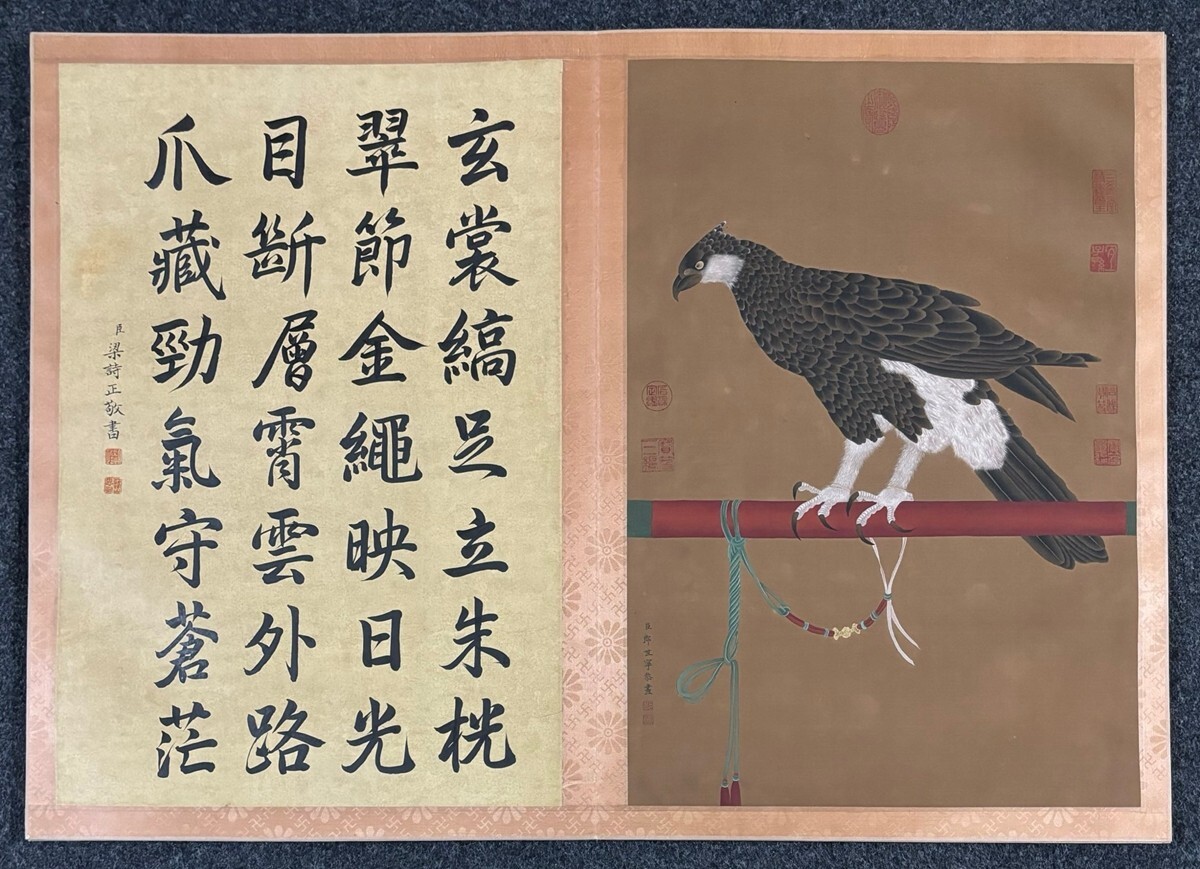 玄裳縞足立朱桄
翠節金繩映日光
目斷層霄雲外路
爪藏勁氣守蒼茫
臣梁詩正敬書